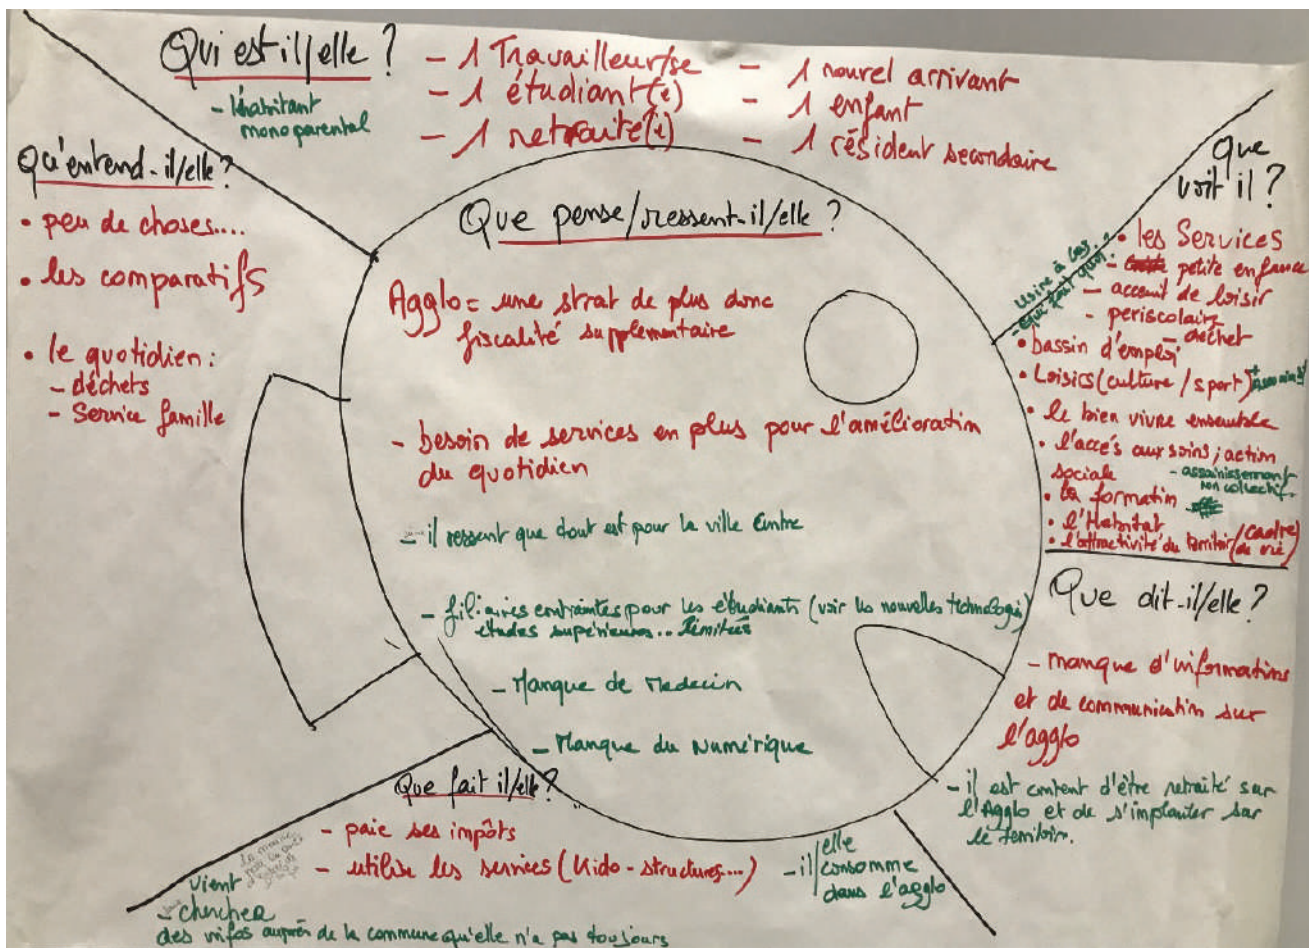 Qui est il/elle ?
- 1 Travailleur/se
- 1 étudiant(e)
- 1 retraité(e)
- 1 nouvel arrivant
- 1 enfant
- 1 résident secondaire
- l'habitant
mono parental
Qu'entend-il/elle ?
• peu de choses....
• les comparatifs
• le quotidien :
- déchets
- Service famille
Que pense/ressent-il/elle ?
Agglo = une strat de plus donc
fiscalité supplementaire
- besoin de services en plus pour l'amélioration
du quotidien
- il ressent que tout est pour la ville Centre
- filiaires contraintes pour les étudiants (voir les nouvelles technologie)
études supérieures... limitées
- Manque de Medecin
- Manque du Numérique
que
voit il ?
- qui fait quoi.
• les Services
- petite enfance
- accueil de loisir
- periscolaire
- déchet
• bassin d'emploi
• Loisirs (culture / sport)
• le bien vivre ensemble
• l'accés aux soins ; action
sociale
- assainissement
non collectif.
• la formation
• l'Habitat
• l'attractivité du territoir (cadre
de vie)
Que dit-il/elle ?
- manque d'informations
et de communication sur
l'agglo
- il est content d'être retraité sur
l'Agglo et de s'implanter sur
le territoir.
Que fait il/elle ?
- paie ses impôts
- utilise les services (Kido-structures....)
- il/elle
consomme
dans l'agglo
vient
chercher
des infos auprès de la commune qu'elle n'a pas toujours